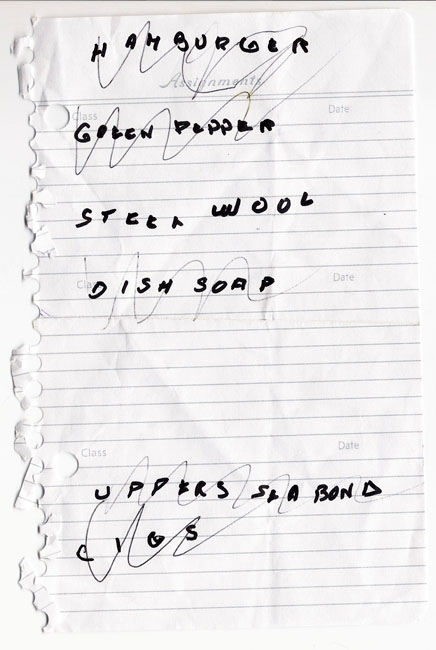 HAMBURGER
Assignments
Class Date
GREEN PEPPER
STEEL WOOL
Class Date
DISH SOAP
Class Date
UPPERS SEA BOND
CIGS